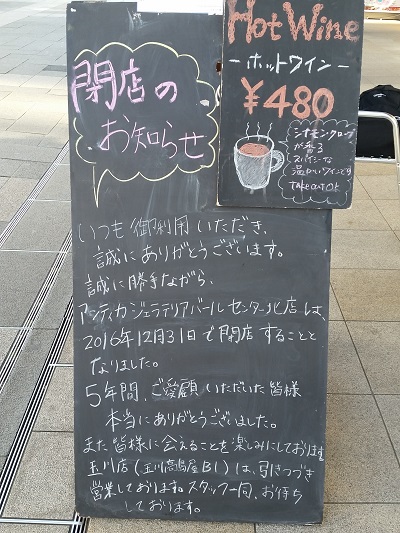 閉店の
お知らせ
Hot Wine
ーホットワインー
¥480
シナモンクローブ
が香る
スパイシーな
温かいワインです
TAKE OUT OK
いつも御利用いただき、
誠にありがとうございます。
誠に勝手ながら、
アンティカジェラテリアバールセンター北店は、
2016年12月31日で閉店することと
なりました。
5年間、ご愛顧いただいた皆様
本当にありがとうございました。
また皆様に会えることを楽しみにしております
玉川店(玉川高島屋B1)は、引きつづき
営業しております。スタッフ一同、お待ち
しております。